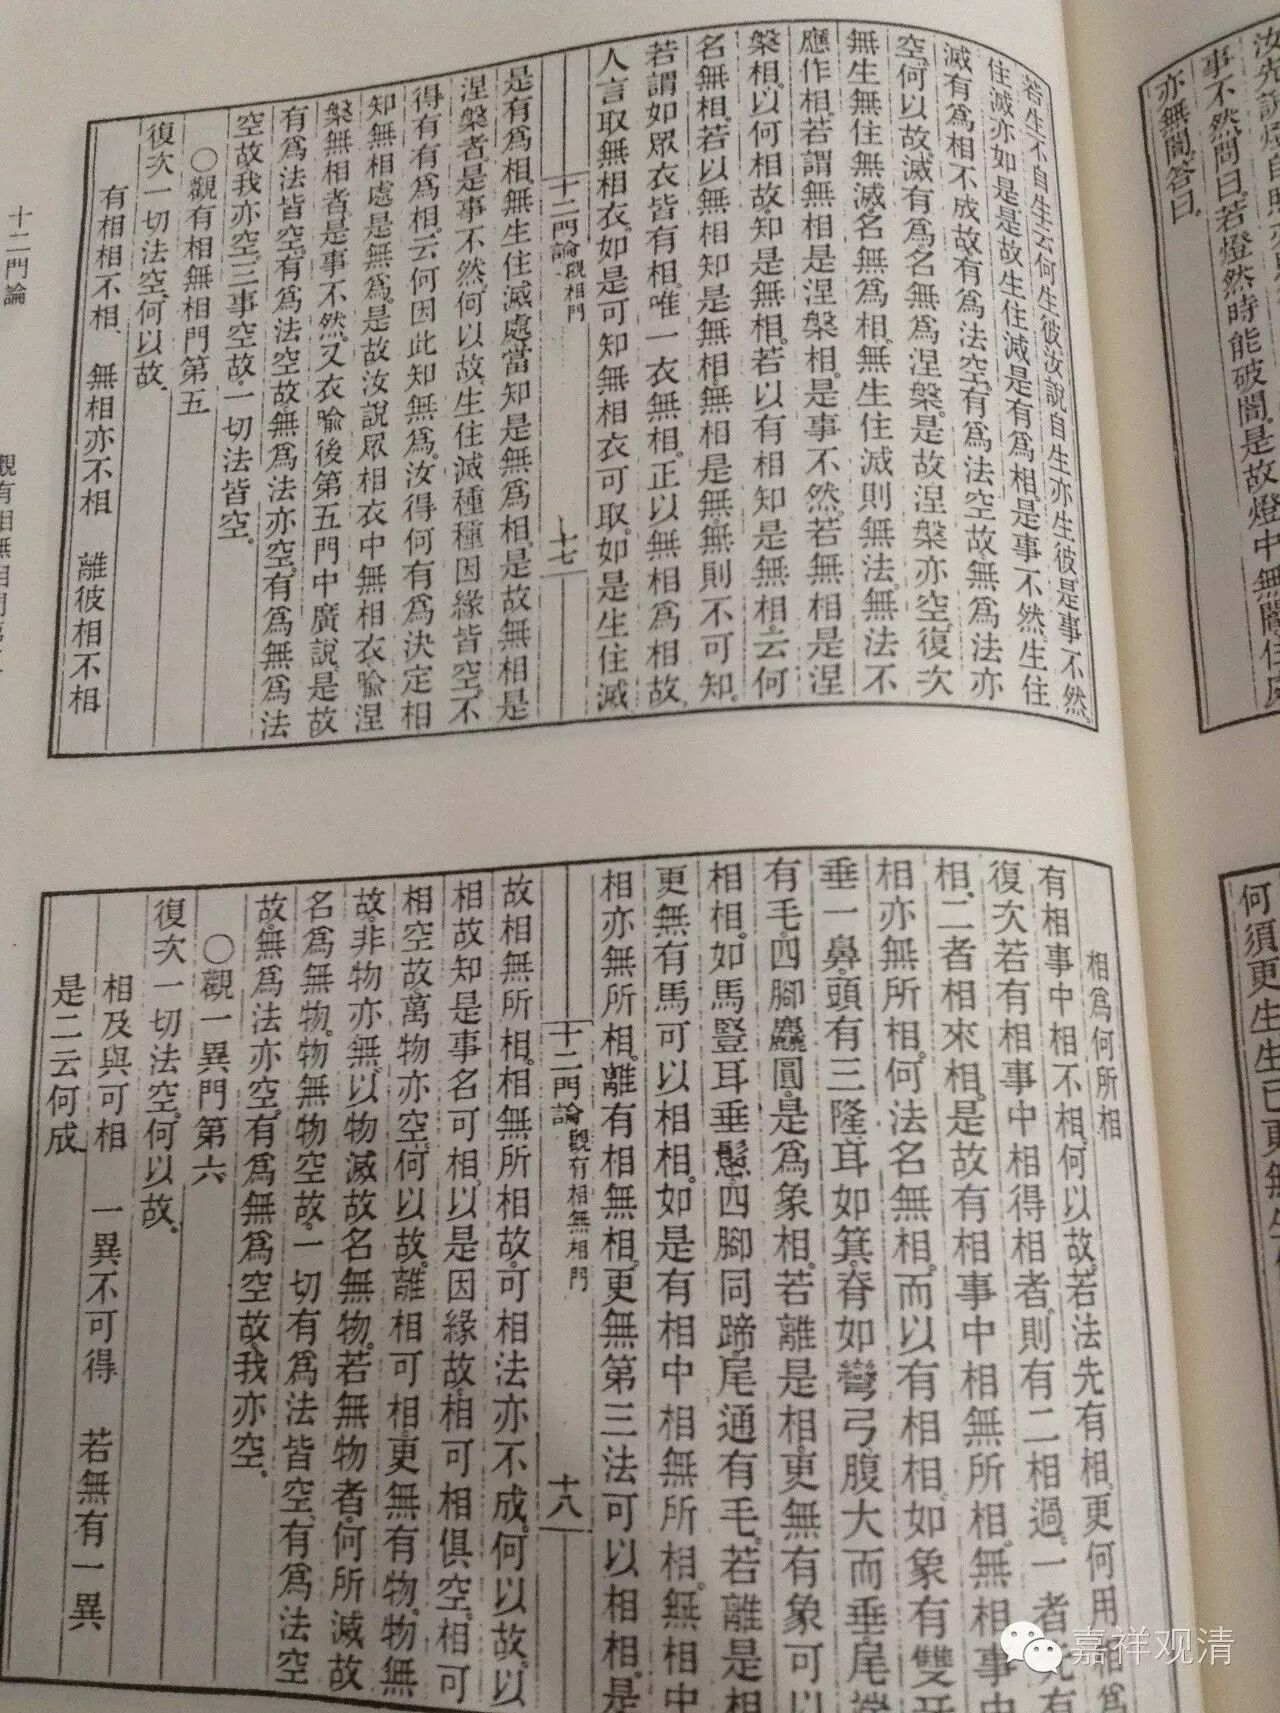 汝先說燈自照
事不然。問曰。若燈然時能破闇。是故燈中無闇住處
亦無闇。答曰。
何須更生。生已更無生
若生不自生。云何生彼。汝說自生亦生彼。是事不然。
住滅亦如是。是故生住滅是有爲相。是事不然。生住
滅有爲相不成故。有爲法空。有爲法空故。無爲法亦
空。何以故。滅有爲。名無爲涅槃。是故涅槃亦空。復次
無生無住無滅。名無爲相。無生住滅則無法。無法不
應作相。若謂無相是涅槃相。是事不然。若無相是涅
槃相。以何相故。知是無相。若以有相知是無相。云何
名無相。若以無相知是無相。無相是無。無則不可知。
若謂如眾衣皆有相。唯一衣無相。正以無相爲相故。
人言取無相衣。如是可知無相衣可取。如是生住滅
十二門論 觀相門 十七
是有爲相。無生住滅處。當知是無爲相。是故無相是
涅槃者。是事不然。何以故。生住滅種種因緣皆空。不
得有有爲相。云何因此知無爲。汝得何有爲決定相
知無相處是無爲。是故汝說眾相衣中無相衣喻涅
槃無相者。是事不然。又衣喻後第五門中廣說。是故
有爲法皆空。有爲法空故。無爲法亦空。有爲無爲法
空故我亦空。三事空故。一切法皆空。
○觀有相無相門第五
復次一切法空。何以故。
有相相不相、 無相亦不相 離彼相不相
十二門論
相爲何所相
有相事中相不相。何以故。若法先有相。更何用相爲
復次若有相事中相得相者。則有二相過。一者先有
相、二者相來相。是故有相事中相無所相。無相事中
相亦無所相。何法名無相。而以有相相。如象有雙牙
垂一鼻。頭有三隆。耳如箕。脊如彎弓。腹大而垂。尾端
有毛。四腳麤圓。是爲象相。若離是相。更無有象可以
相相。如馬豎耳垂髦。四腳同蹄。尾通有毛。若離是相
更無有馬可以相相。如是有相中相無所相。無相中
相亦無所相。離有相無相。更無第三法可以相相。是
十二門論 觀有相無相門 十八
故相無所相。相無所相故。可相法亦不成。何以故。以
相故知是事名可相。以是因緣故。相可相俱空。相可
相空故。萬物亦空。何以故。離相可相。更無有物。物無
故。非物亦無。以物滅故名無物。若無物者。何所滅故
名爲無物。物無物空故。一切有爲法皆空。有爲法空
故。無爲法亦空。有爲無爲空故。我亦空。
○觀一異門第六
復次一切法空。何以故。
相及與可相 一異不可得 若無有一異
是二云何成
嘉祥观清